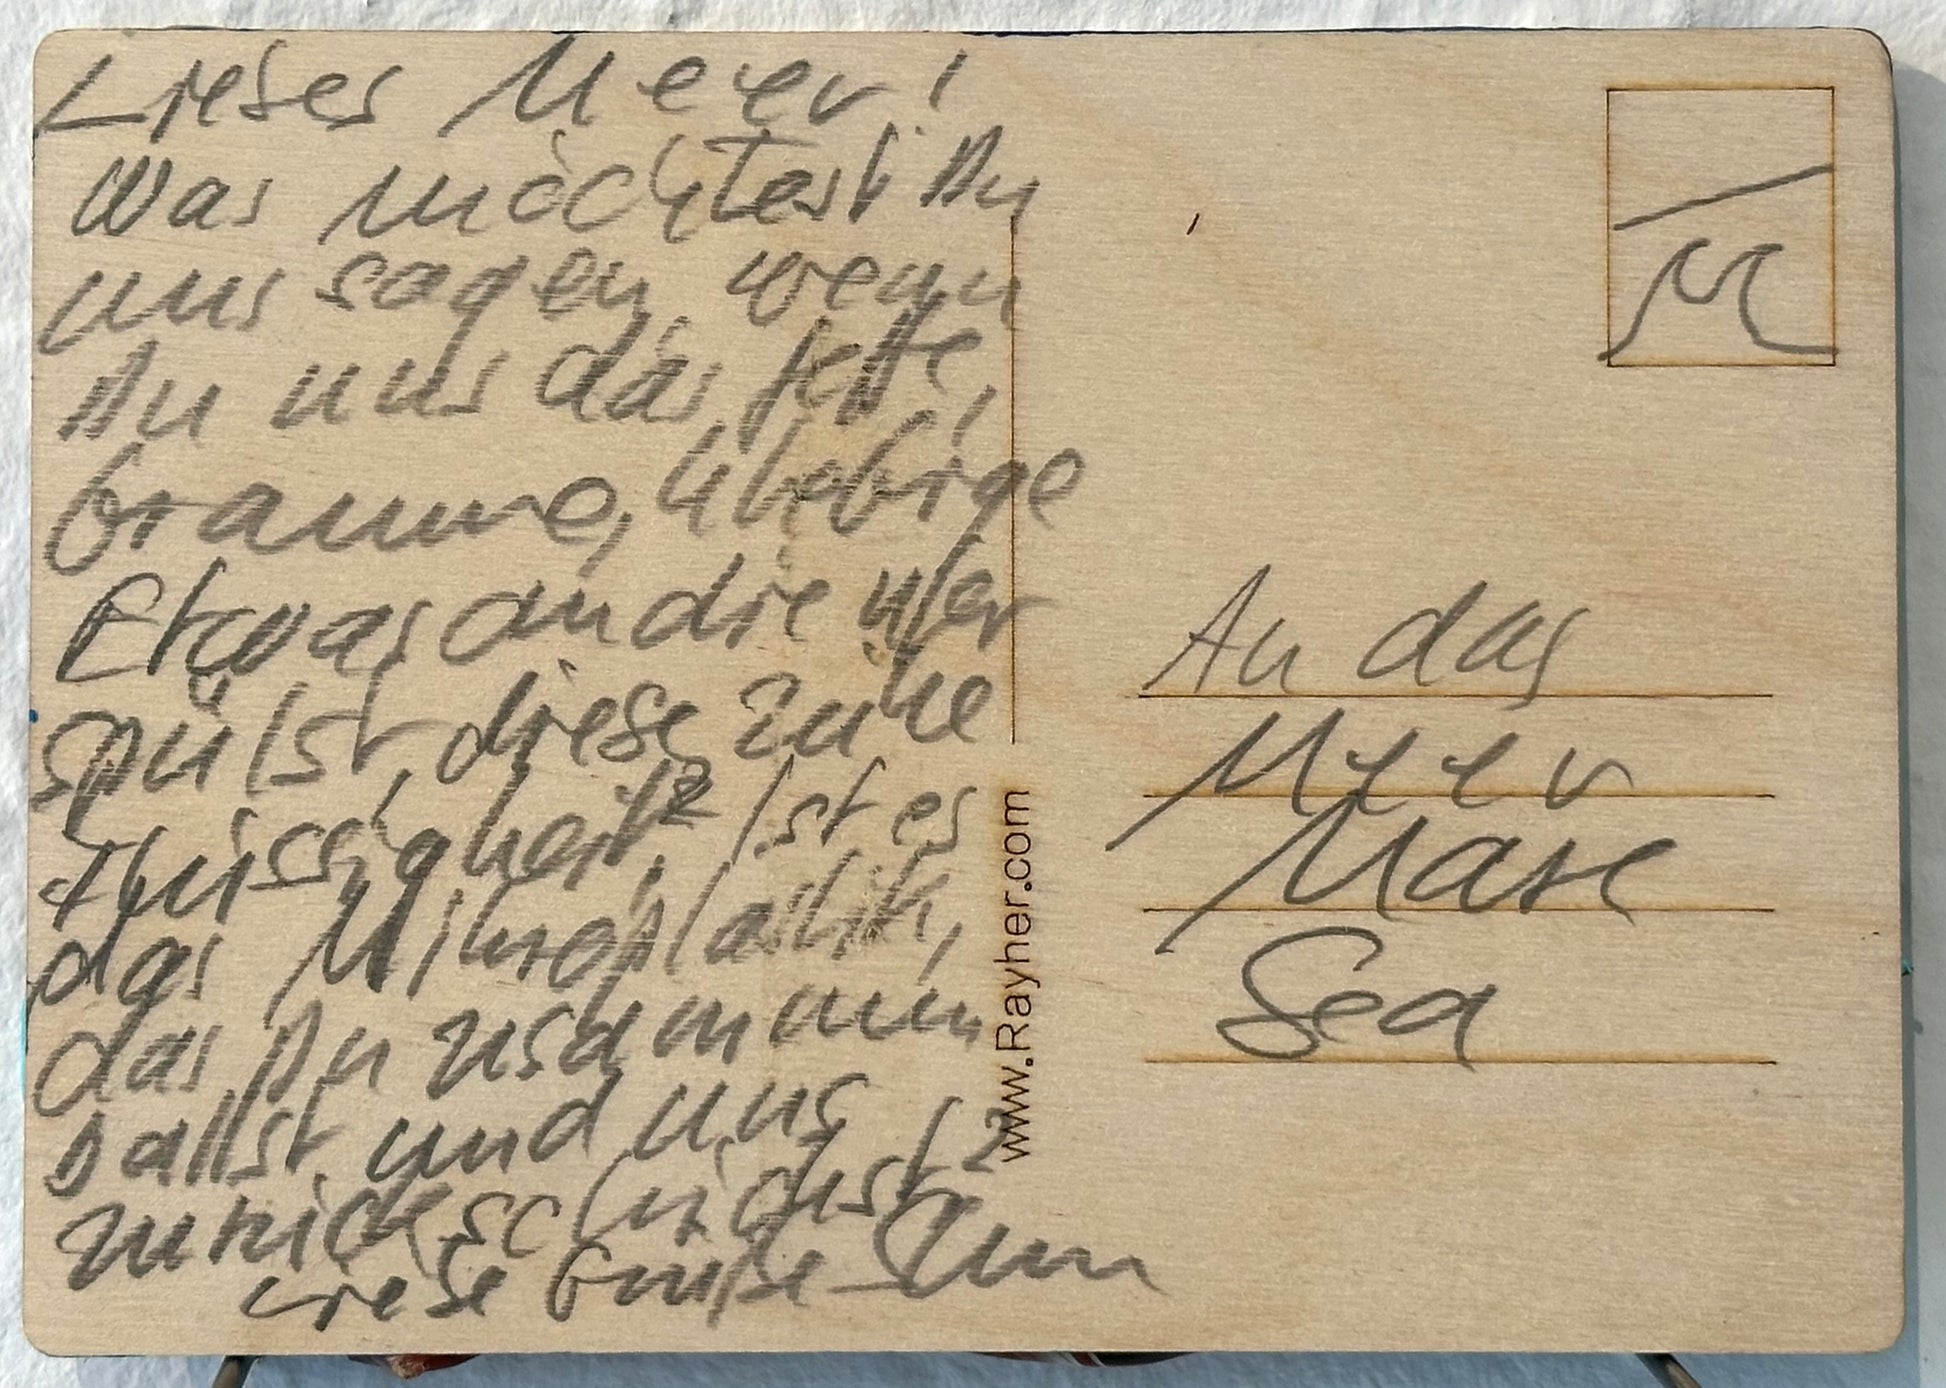 Liebes Meer!
Was möchtest Du
uns sagen, wenn
Du uns das fette,
braune, klebrige
Etwas an die Ufer
spülst, diese zähe
Flüssigkeit? Ist es
das Mikroplastik,
das Du zusammen
ballst und uns
zurückschickst?
Liebe Grüße
An das
Meer
Mare
Sea
www.Rayher.com